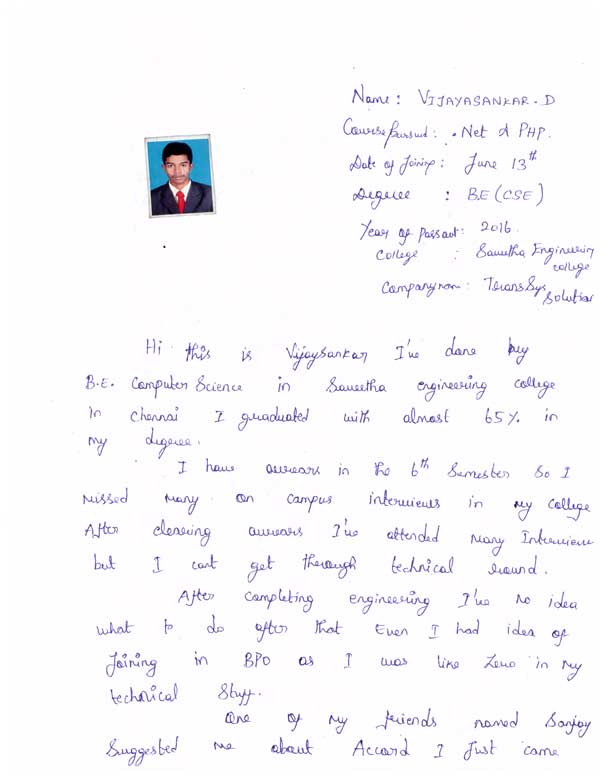 Name : VIJAYASANKAR . D
Course Pursued : . Net & PHP.
Date of Joining : June 13th
Degree : B.E (CSE)
Year of Passout : 2016.
College : Saveetha Engineering
college
Company nam : TransSys
Solution
Hi this is VijaySankar I've done my
B.E. Computer Science in Saveetha engineering college
In chennai I graduated with almost 65% in
my degree.
I have arrears in the 6th Semester So I
missed many on campus interviews in my college
After clearing arrears I've attended many Interview
but I cant get through technical round.
After completing engineering I've no idea
what to do after that Even I had idea of
Joining in BPO as I was like Zero in my
technical Stuff.
One of my friends named Sanjay
Suggested me about Accord I Just came